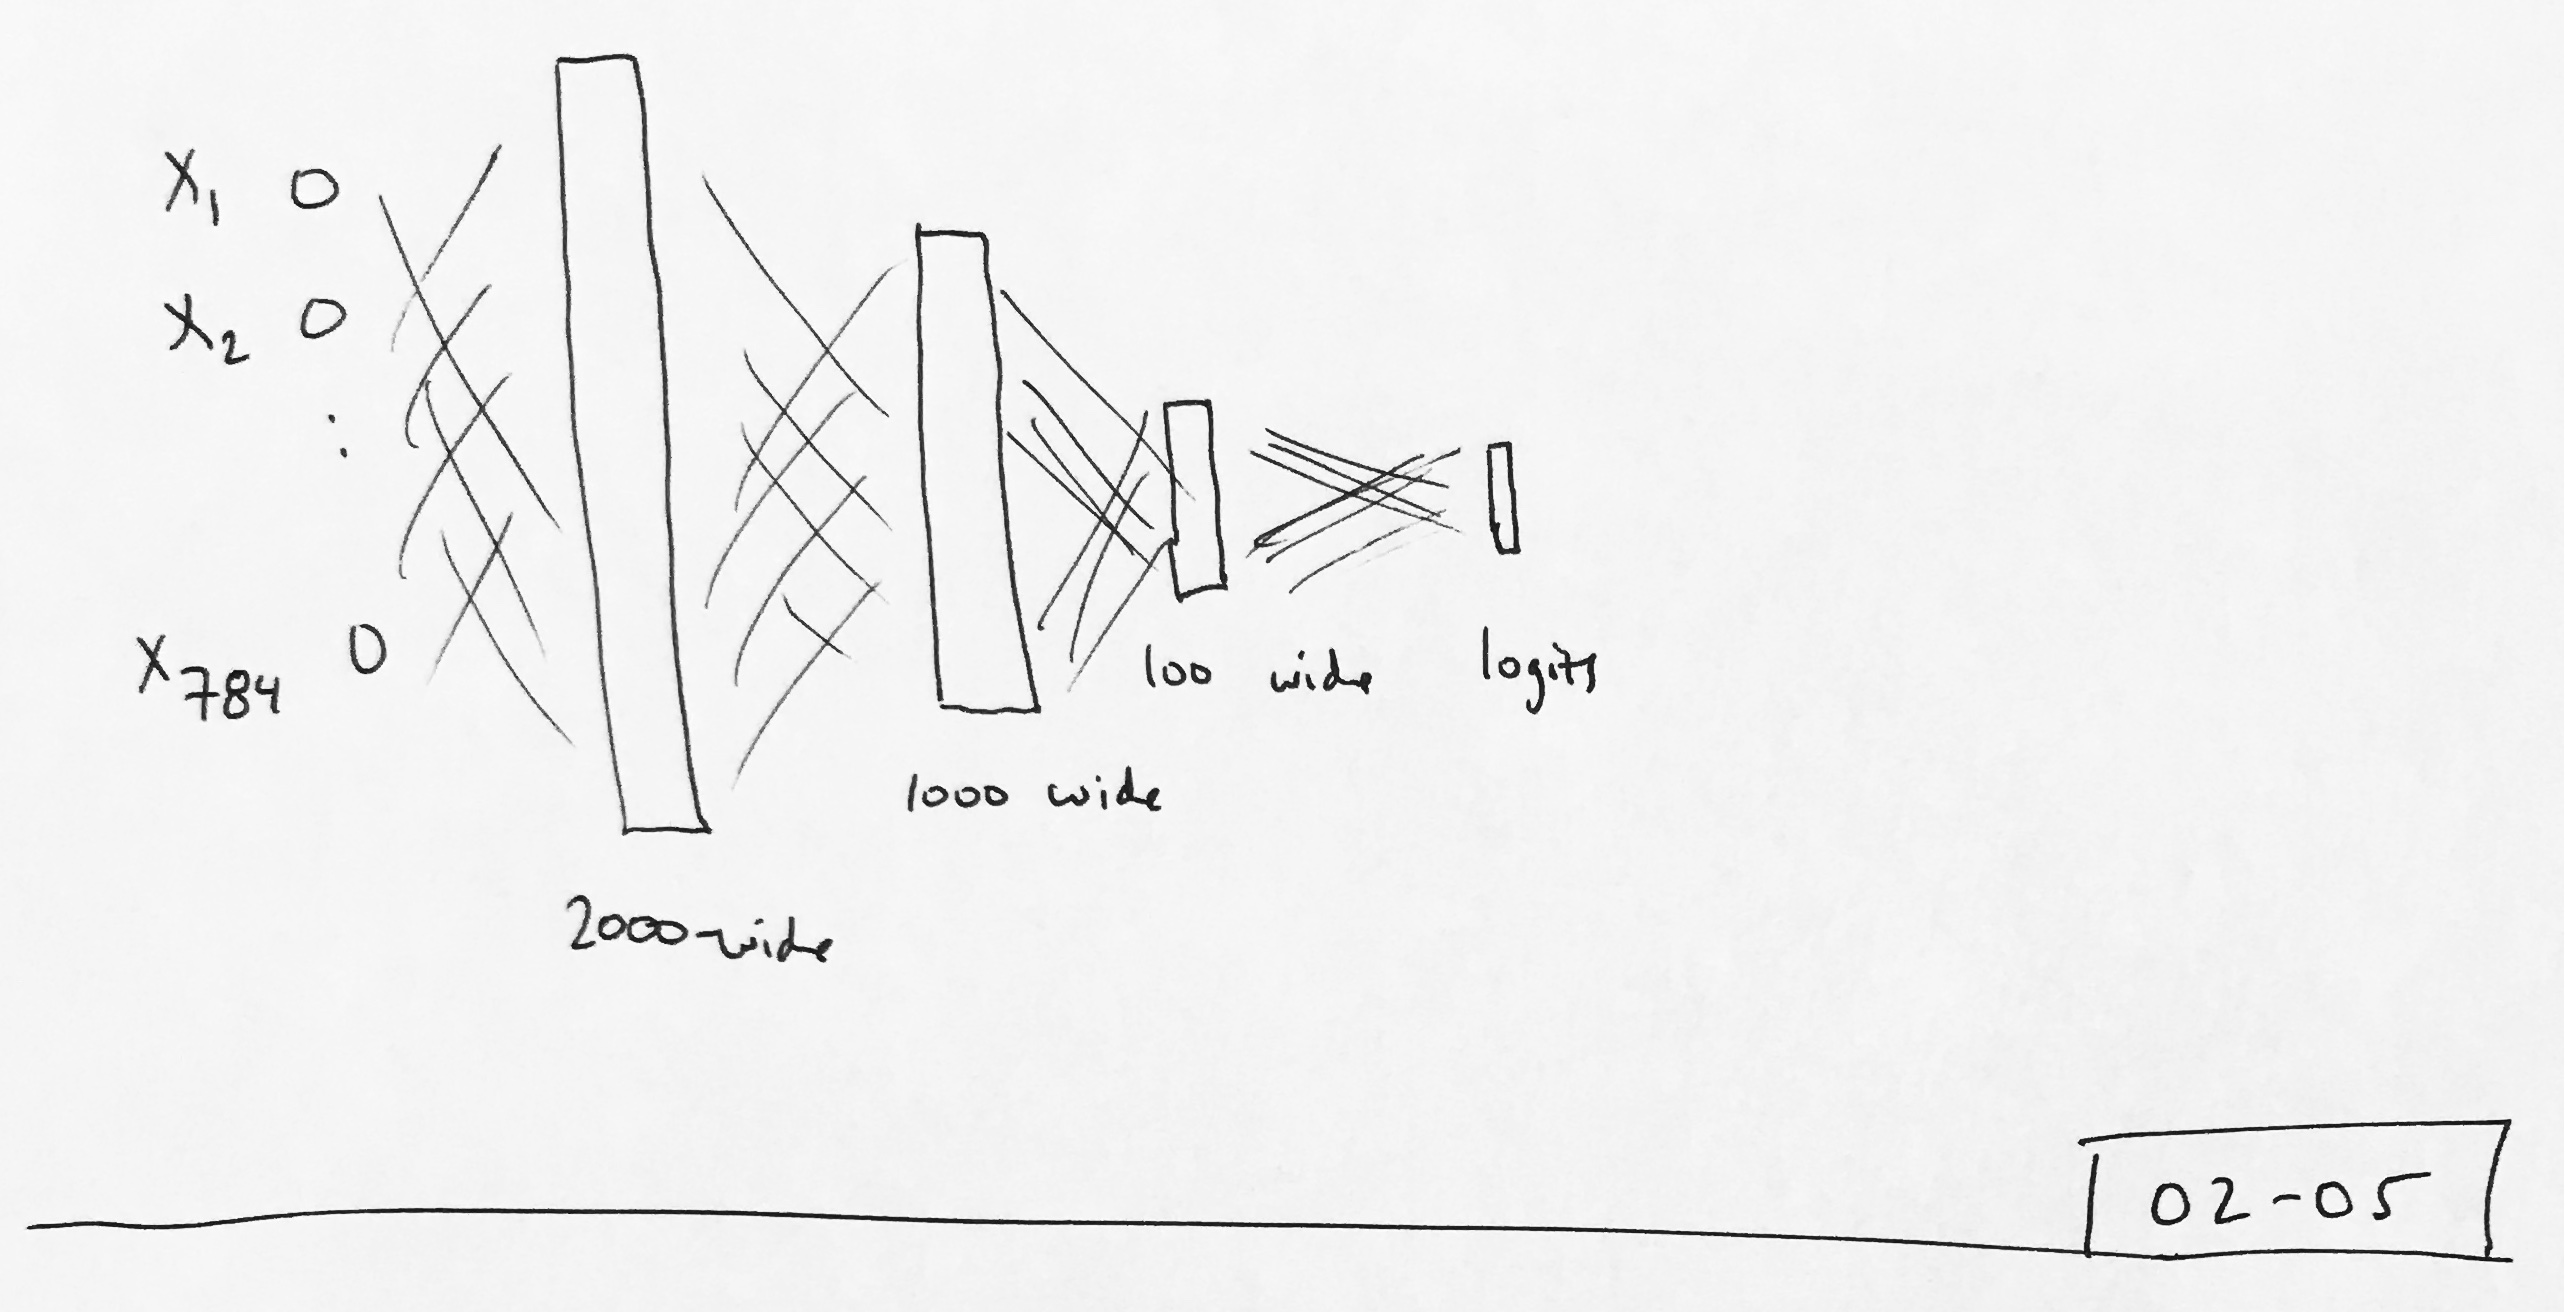 X1 O
X2 O
:
X784 O
2000-wide
1000 wide
100 wide
logits
02-05